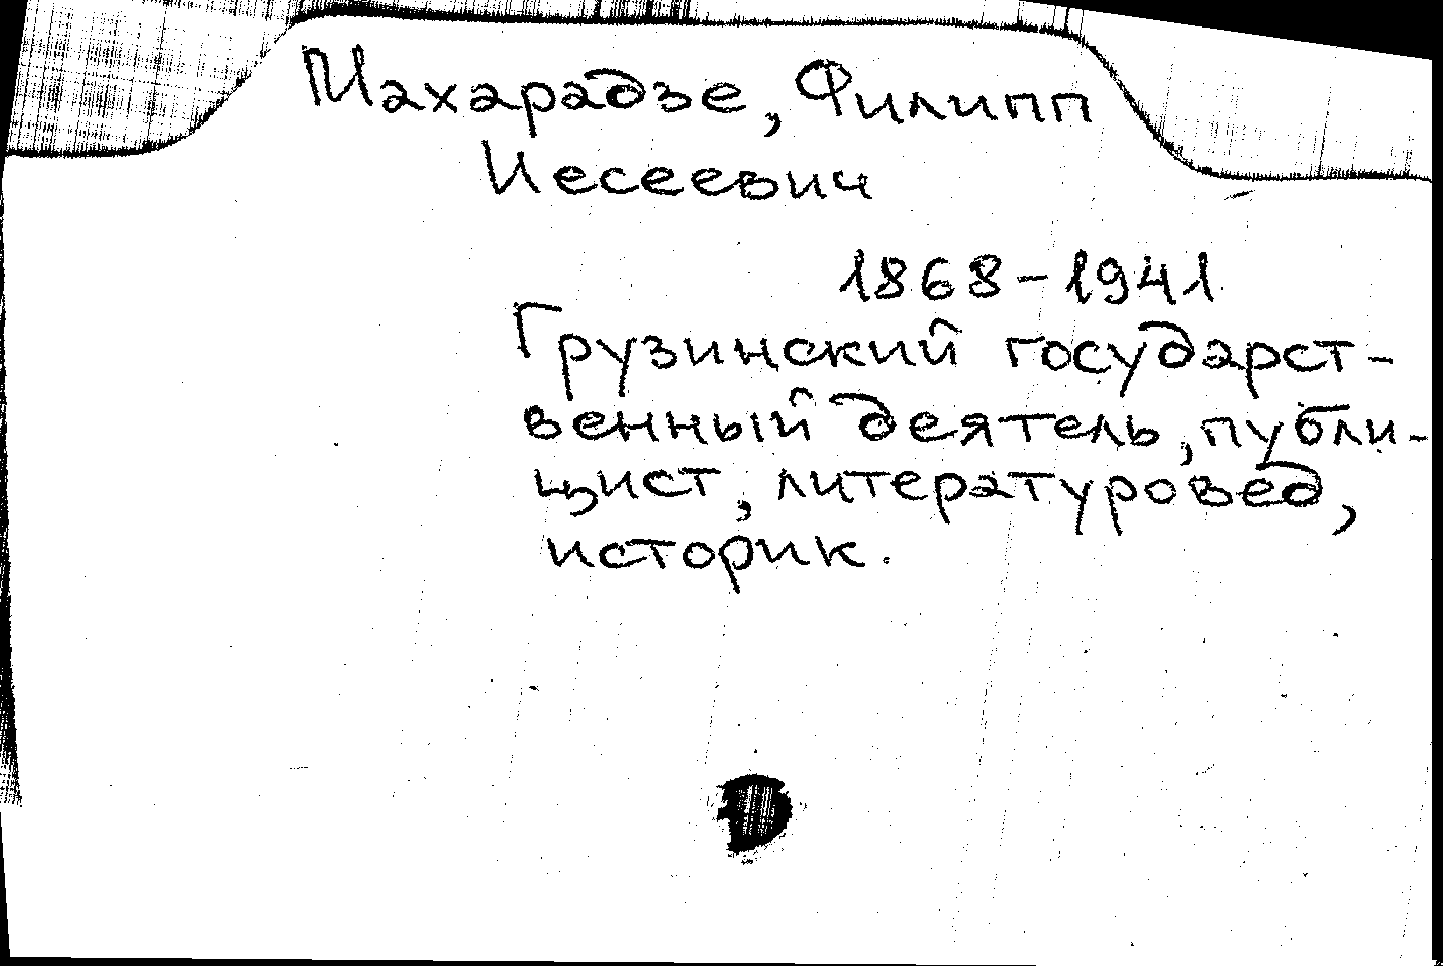 Махарадзе, Филипп
Иесеевич
1868-1941
Грузинский государст-
венный деятель, публи-
цист, литературовед,
историк.